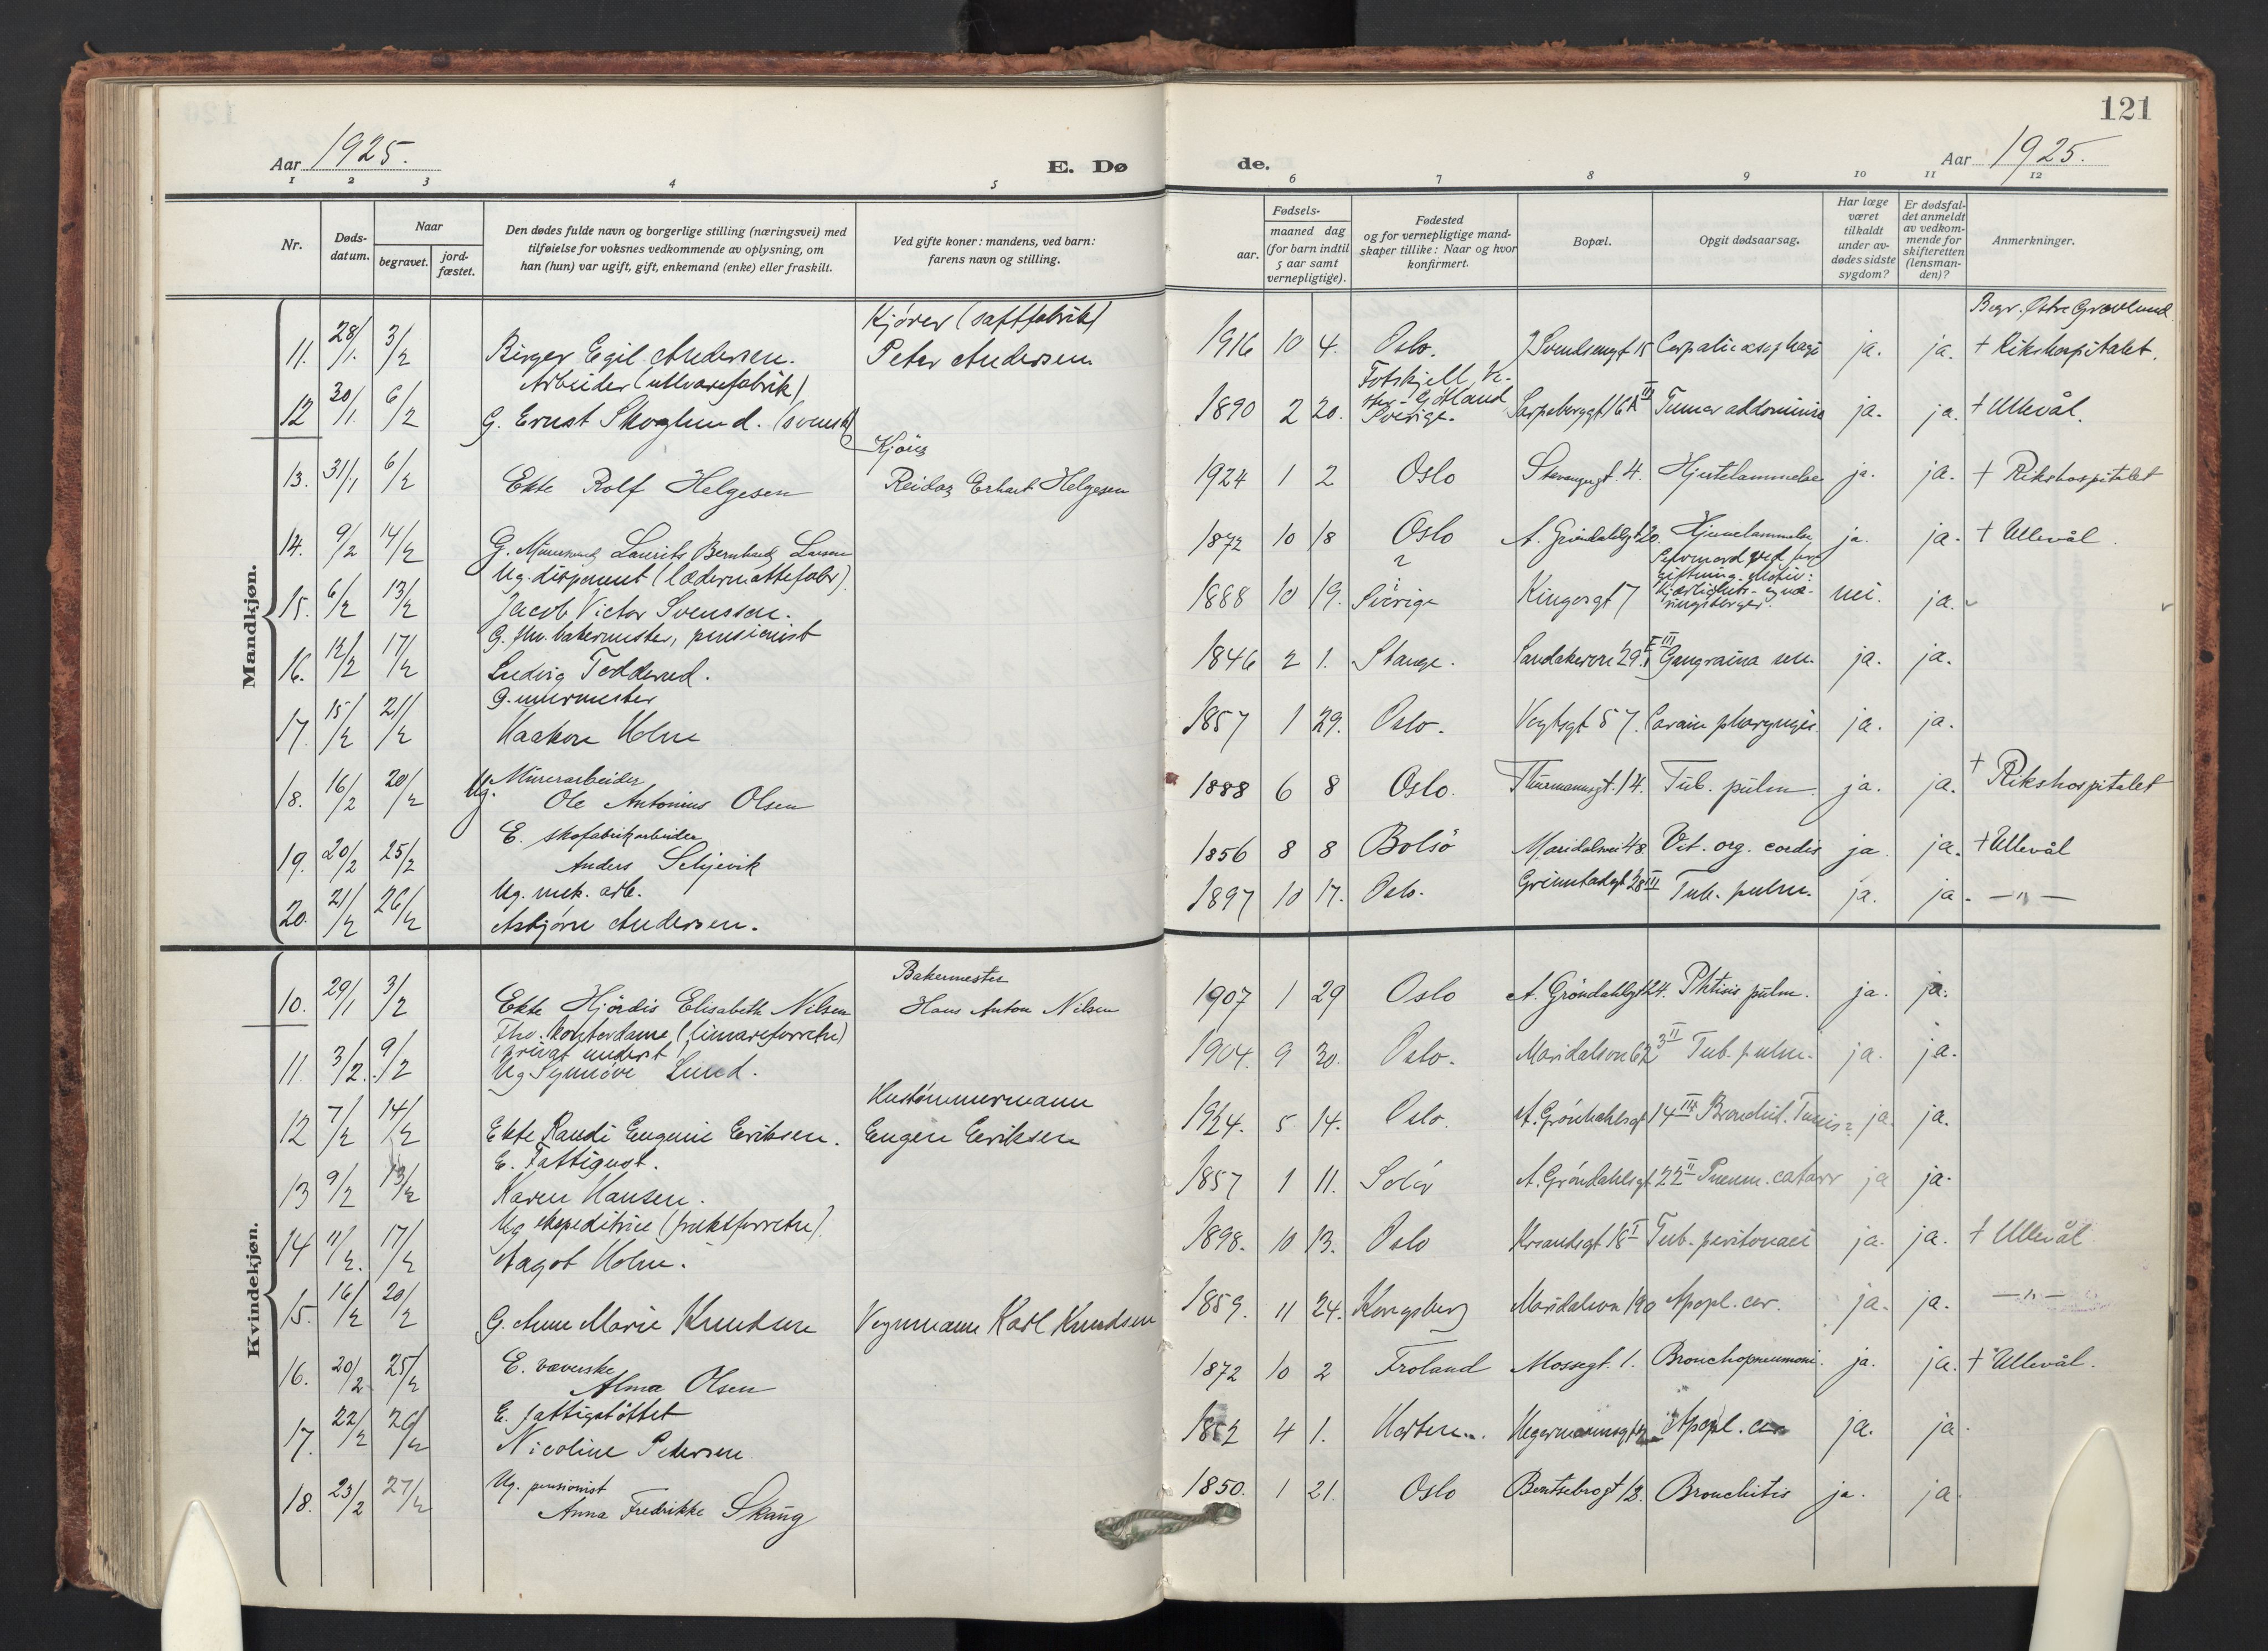 121
Aar 1925.
E. Dø de.
Aar 1925.
1 2 3 4 5 6 7 8 9 10 11 12
Nr.
Døds-
datum.
Naar
begravet.
jord-
fæstet.
Den dødes fulde navn og borgerlige stilling (næringsvei) med
tilføielse for voksnes vedkommende av oplysning, om
han (hun) var ugift, gift, enkemand (enke) eller fraskilt.
Ved gifte koner: mandens, ved barn:
farens navn og stilling.
aar.
Fødsels-
maaned dag
(for barn indtil
5 aar samt
vernepligtige).
Fødested
og for vernepligtige mand-
skaper tillike: Naar og hvor
konfirmert.
Bopæl.
Opgit dødsaarsag.
Har læge
været
tilkaldt
under av-
dødes sidste
sygdom?
Er dødsfal-
det anmeldt
av vedkom-
mende for
skifteretten
(lensman-
den)?
Anmerkninger.
Mandkjøn.
Kjører (saftfabrik) Begr. Østre Gravlund
11. 28/1. 3/2 Birger Egil Andersen. Peter Andersen 1916 10 4. Oslo. J Svendsengt 15 ja. ja. + Rikshospitalet.
Arbeider
Gøtland
12 30/1. 6/2 G. Ernst Skoglund. (svensk) 1890 2 20. Sverige. Sarpsborggt 16 Tumor abdominis ja. ja. + Ullevål.
Kjøris
13. 31/1 6/2 Ekte Rolf Helgesen Reidar Erhart Helgesen 1924 1 2 Oslo Stavangergt. 4. Hjertelammelse ja. ja. + Rikshospitalet
14. 9/2 14/2 G. Laurits Bernhard Larsen 1872 10 18 Oslo A. Grøndahlsgt 20. ja. ja. + Ullevål.
Ug. disponent (lædermattefabr). Selvmord ved for-
giftning. Motiv:
15. 6/2 13/2 Jacob Victor Svensson. 1888 10 19. Sverige Kingosgt 7 nei. ja.
G. fhv. bakermester, pensionist
16. 12/2 17/2 Ludvig Todderud. 1846 2 1. Stange. Sandakervn 29 Gangraina sen. ja. ja.
G. murmester
17. 15/2 21/2 Haakon Holm 1857 1 29. Oslo. Vogtsgt 57. pharyngis ja. ja.
Murerarbeider
18. 16/2 20/2 Ug. Ole Antonius Olsen 1888 6 8 Oslo. Thurmannsgt. 14. Tub. pulm. ja. ja. + Rikshospitalet
E. skofabrikarbeider
19. 20/2 25/2 Anders Seljevik 1856 8 8 Bolsö Maridalsvei 48 Vit. org. cordis ja ja. + Ullevål
Ug. mek. arb.
20. 21/2 26/2 Asbjørn Andersen. 1897 10 17. Oslo. Grimstadgt 28 III Tub. pulm. ja. ja. — „ —
Kvindekjøn.
Bakermester
10. 29/1 3/2 Ekte Hjördis Elisabeth Nilsen Hans Anton Nilsen 1907 1 29 Oslo A. Gröndahlsgt 24. Phtisis pulm. ja. ja.
Fhv. kontordame
(privat underst.)
11. 3/2. 9/2 Ug Synnöve Lund. 1904. 9 30. Oslo. Maridalsvn 62 Tub. pulm. ja. ja.
Hustømmermann
12 7/2 14/2 Ekte Randi Eugenie Eriksen. Eugen Eriksen 1924. 5 14. Oslo. A. Grøndahlsgt 14 III Bronchit. ja. ja.
E. Fattigunst.
13 9/2 13/2 Karen Hansen. 1857 1 11. Solør A. Grøndahlsgt 22 II Pneum. catarr ja ja.
Ug ekspeditrice (fruktforretn).
14 11/2. 17/2 Aagot Holm. 1898. 10 13. Oslo Krsandsgt 18 I Tub. peritonaei ja. ja. + Ullevål
15. 16/2 20/2 G. Anne Marie Knudsen Vognmann Karl Knudsen 1859. 11 24. Kongsberg Maridalsvn 190 Apopl. cer. ja. ja. — „ —
E. væverske
16. 20/2 25/2 Alma Olsen 1872 10 2 Froland Mossegt. 1. Bronchopneumoni. ja. ja. + Ullevål.
E. fattigstöttet
17. 22/2 26/2 Nicoline Petersen 1852 4 1. Horten. Hegermannsgt Apopl. cer ja. ja.
Ug. pensionist
18. 23/2 27/2 Anna Fredrikke Skaug 1850. 1 21. Oslo Bentsebrogt 13. Bronchitis ja. ja.